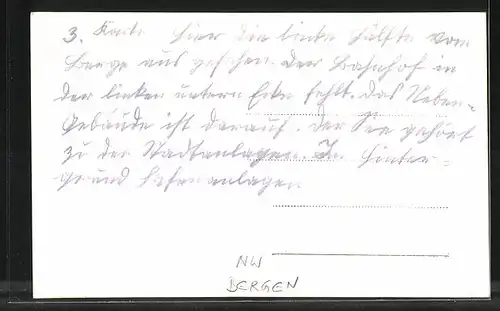 3. Karte Hier die linke Hälfte vom
Berge aus gesehen. Der Bahnhof in
der linken untern Ecke fehlt. Das Neben-
Gebäude ist darauf. Der See gehört
zu den Stadtanlagen. Im Hinter-
grund Hafenanlagen
NW
BERGEN